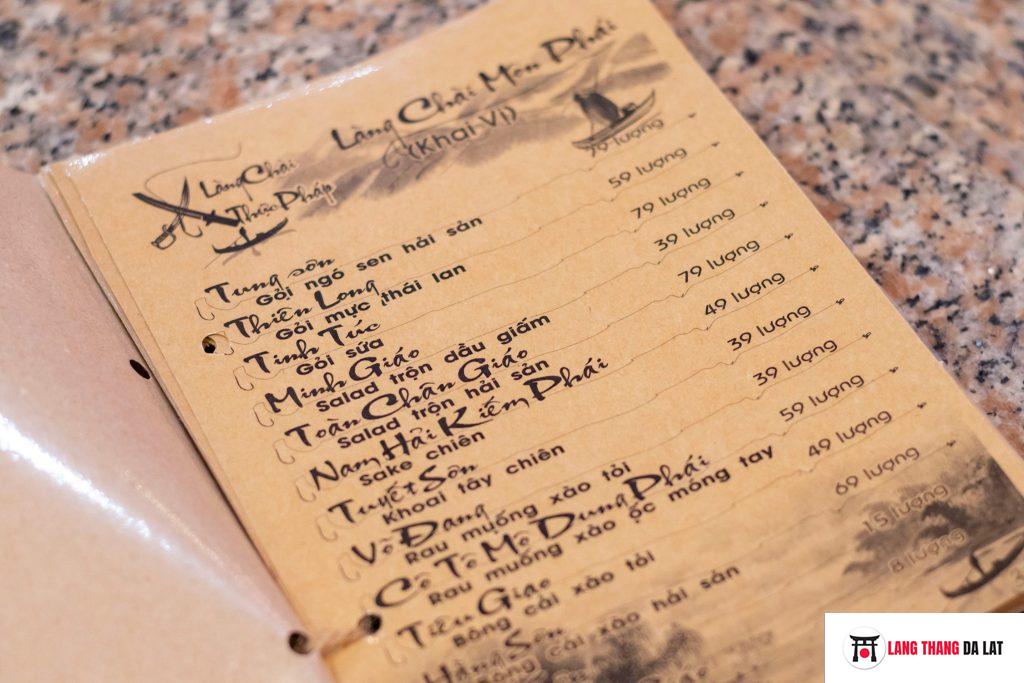 Làng Chài Môn Phái
(Khai Vị)
Làng Chài
Thực Pháp
Tung sơn
Gỏi ngó sen hải sản
Thiên Long
Gỏi mực thái lan
Tinh Túc
Gỏi sứa
Minh Giáo
Salad trộn dầu giấm
Toàn Chân Giáo
Salad trộn hải sản
Nam Hải Kiếm Phái
Sake chiên
Tuyết Sơn
Khoai tây chiên
Võ Đang
Rau muống xào tỏi
Cô Tô Mộ Dung Phái
Rau muống xào ốc móng tay
Tiêu Giao
Bông cải xào tỏi
Hằng Sơn
Bông cải xào hải sản
79 lượng
59 lượng
79 lượng
39 lượng
79 lượng
49 lượng
39 lượng
39 lượng
59 lượng
49 lượng
69 lượng
15 lượng
8 lượng
LANG THANG DA LAT